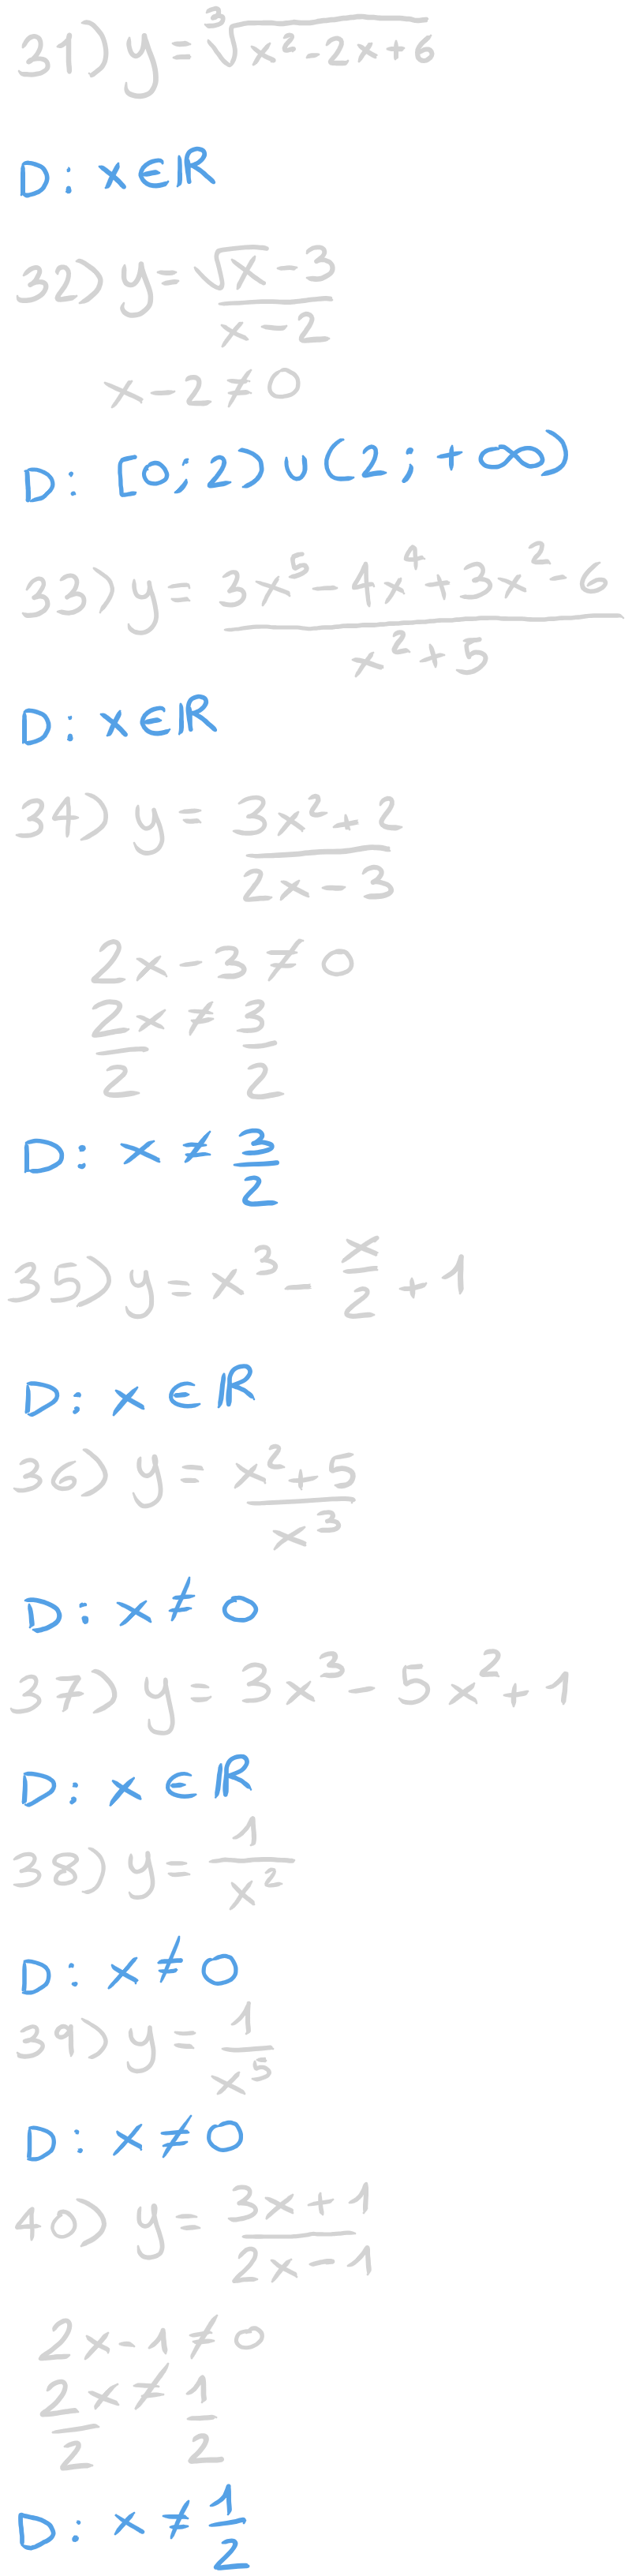 31) y = ∛(x² - 2x + 6)
D: x ∈ ℝ
32) y = (√x - 3)/(x - 2)
x - 2 ≠ 0
D: [0; 2) ∪ (2; +∞)
33) y = (3x⁵ - 4x⁴ + 3x² - 6)/(x² + 5)
D: x ∈ ℝ
34) y = (3x² + 2)/(2x - 3)
2x - 3 ≠ 0
2x/2 ≠ 3/2
D: x ≠ 3/2
35) y = x³ - x/2 + 1
D: x ∈ ℝ
36) y = (x² + 5)/x³
D: x ≠ 0
37) y = 3x³ - 5x² + 1
D: x ∈ ℝ
38) y = 1/x²
D: x ≠ 0
39) y = 1/x⁵
D: x ≠ 0
40) y = (3x + 1)/(2x - 1)
2x - 1 ≠ 0
2x/2 ≠ 1/2
D: x ≠ 1/2